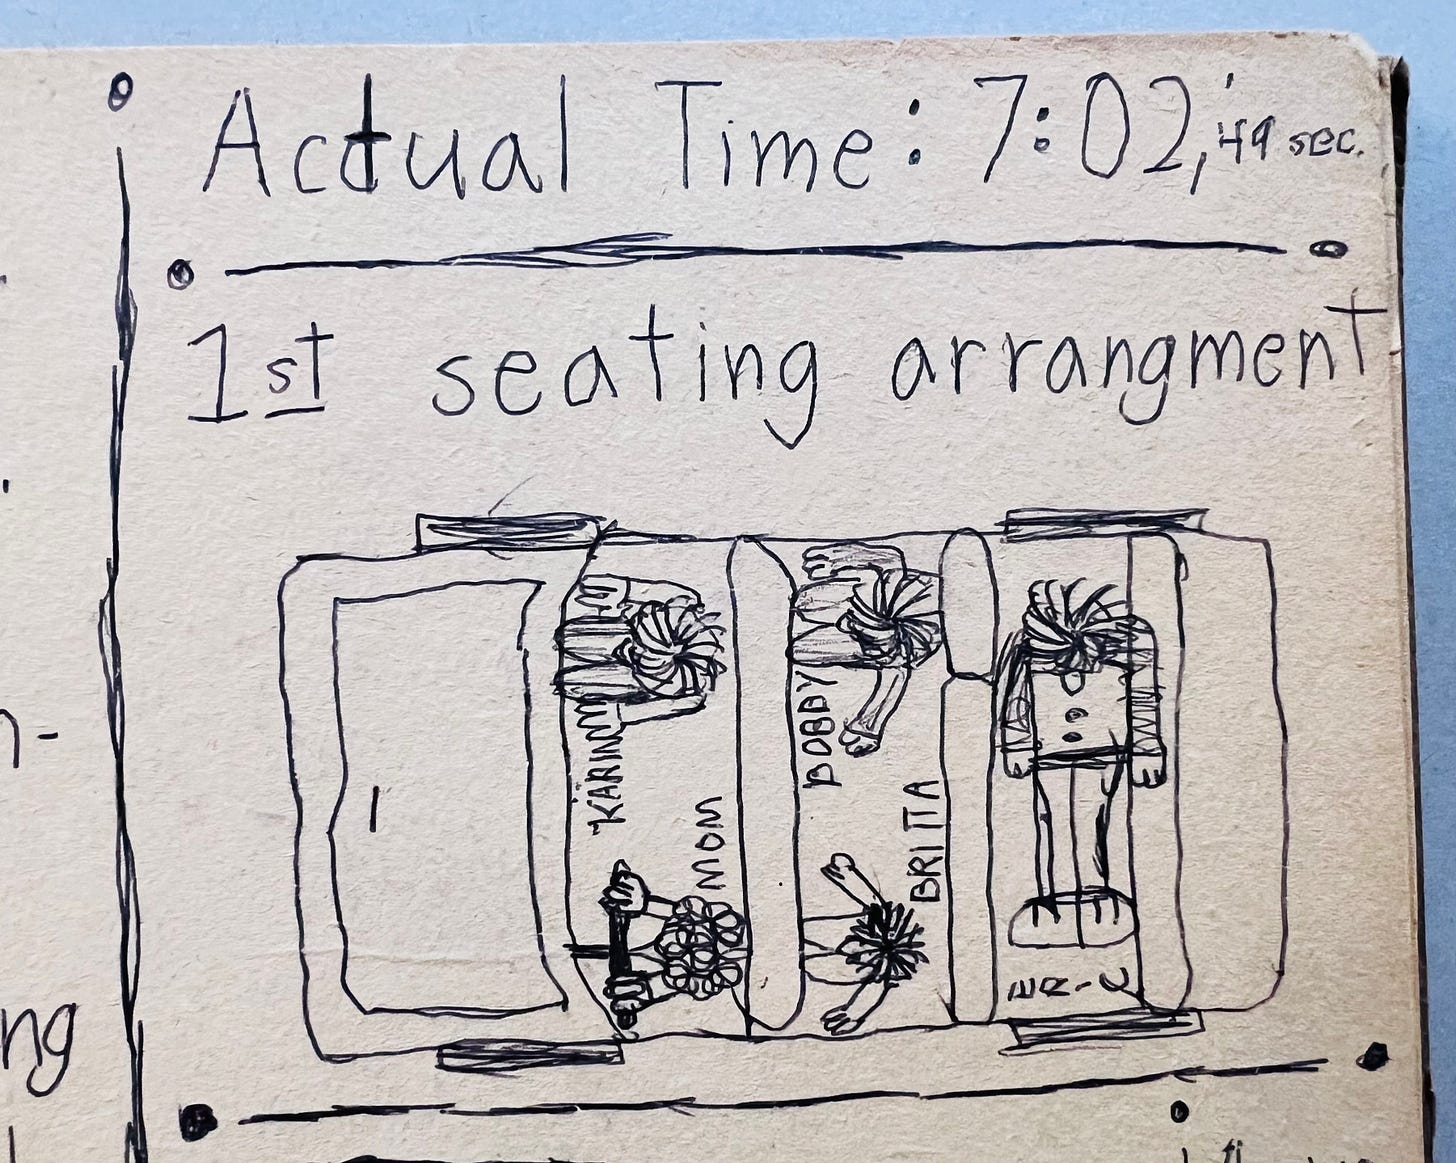 Actual Time: 7:02, 49 sec.
1st seating arrangment
KARINN
MOM
BOBBY
BRITTA
ERIC
ng